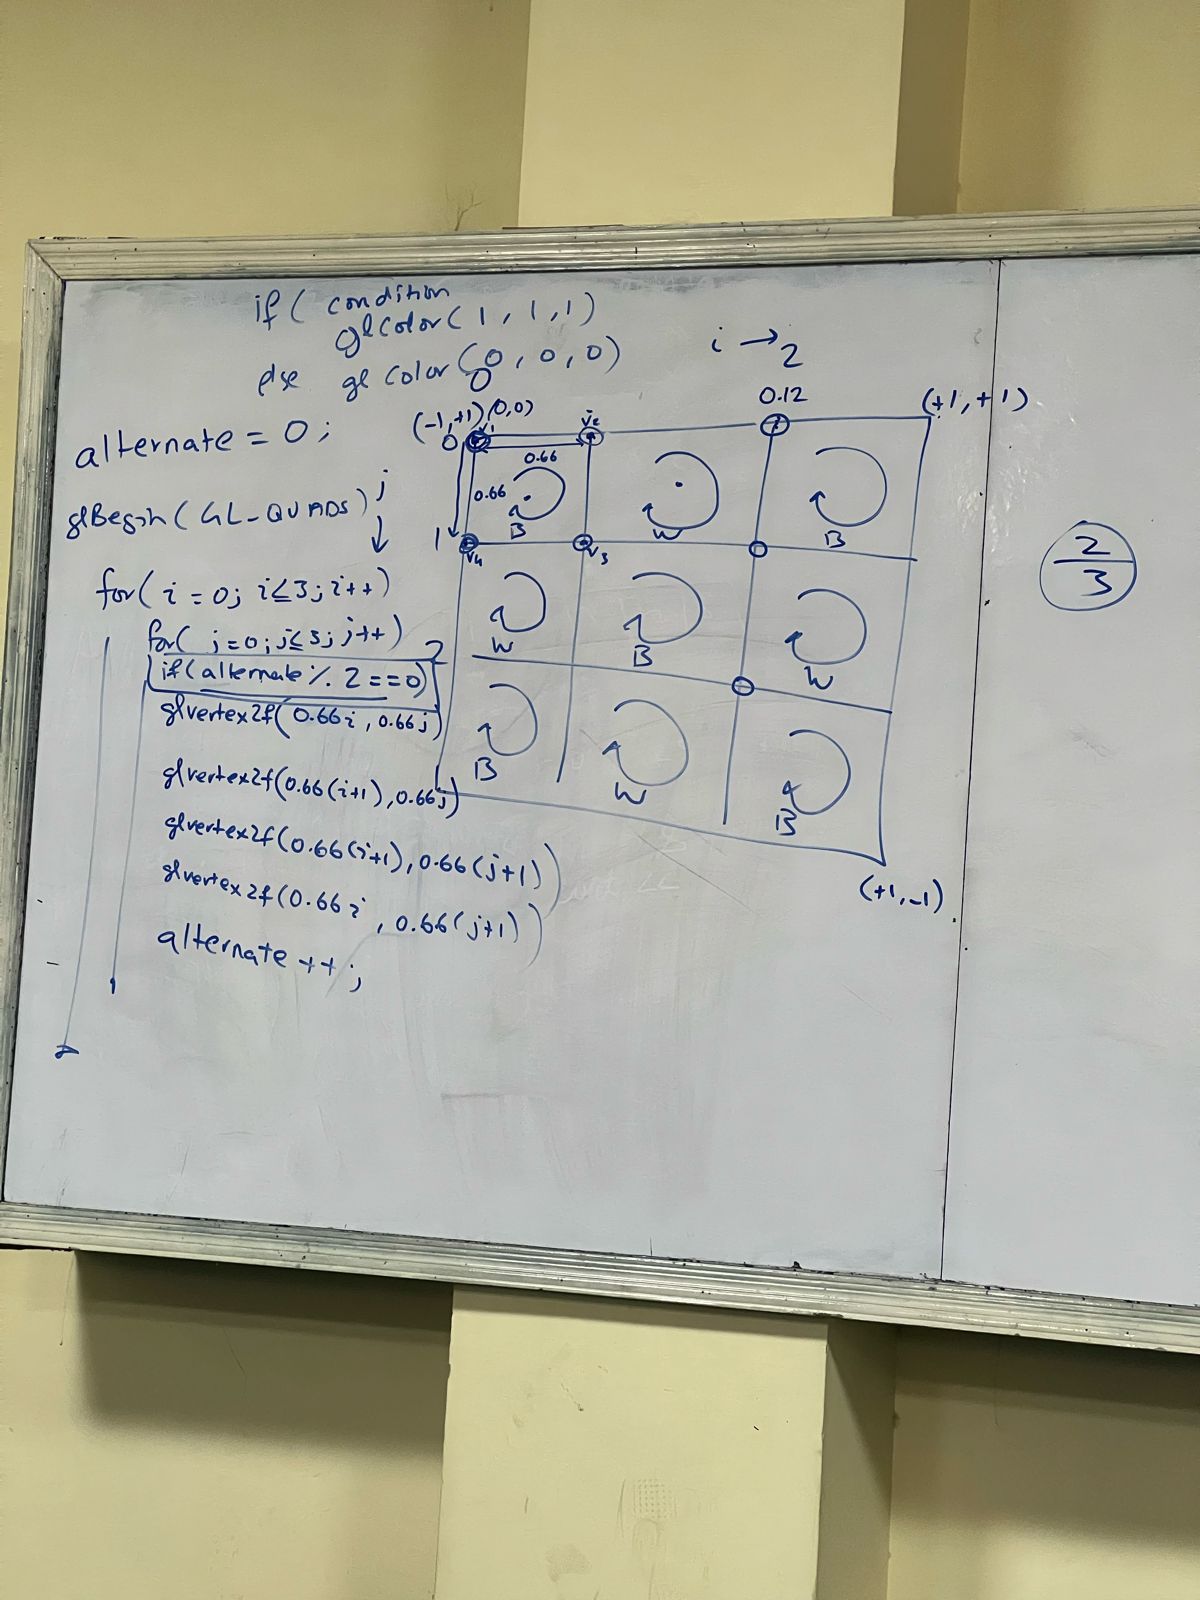 if ( condition
glColor( 1, 1, 1)
else gl color (0, 0, 0)
0
i → 2
alternate = 0;
glBegin( GL_QUADS)
j
↓
for( i = 0; i≤3; i++)
for( j=0; j≤3; j++)
if( alternate % 2 == 0)
glvertex2f( 0.66i, 0.66j)
glvertex2f(0.66(i+1), 0.66j)
glvertex2f(0.66(i+1), 0.66(j+1))
glvertex2f(0.66i, 0.66(j+1))
alternate ++;
(-1,+1) (0,0)
0.12
(+1,+1)
0 V1 V2
0.66
0.66
B W B
1 V4 V3
W B W
2
B W B
(+1,-1)
2
3